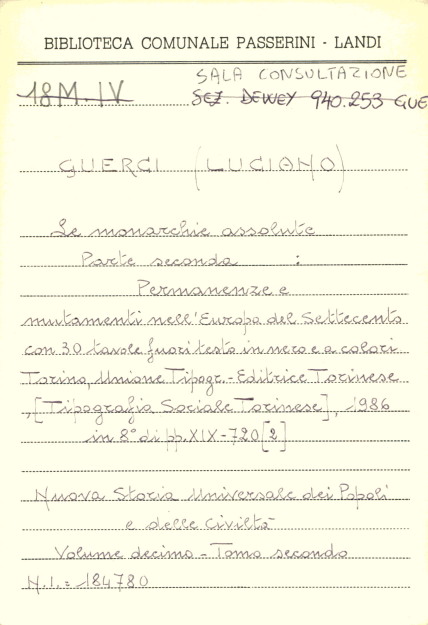 BIBLIOTECA COMUNALE PASSERINI - LANDI
SALA CONSULTAZIONE
18M.IV SEZ. DEWEY 940.253 GUE
GUERCI (LUCIANO)
Le monarchie assolute
Parte seconda :
Permanenze e
mutamenti nell'Europa del Settecento
con 30 tavole fuori testo in nero e a colori
Torino, Unione Tipogr.-Editrice Torinese
,[Tipografia Sociale Torinese], 1986
in 8° di pp. XIX-720[2]
Nuova Storia Universale dei Popoli
e delle Civiltà
Volume decimo - Tomo secondo
N.I.: 184780